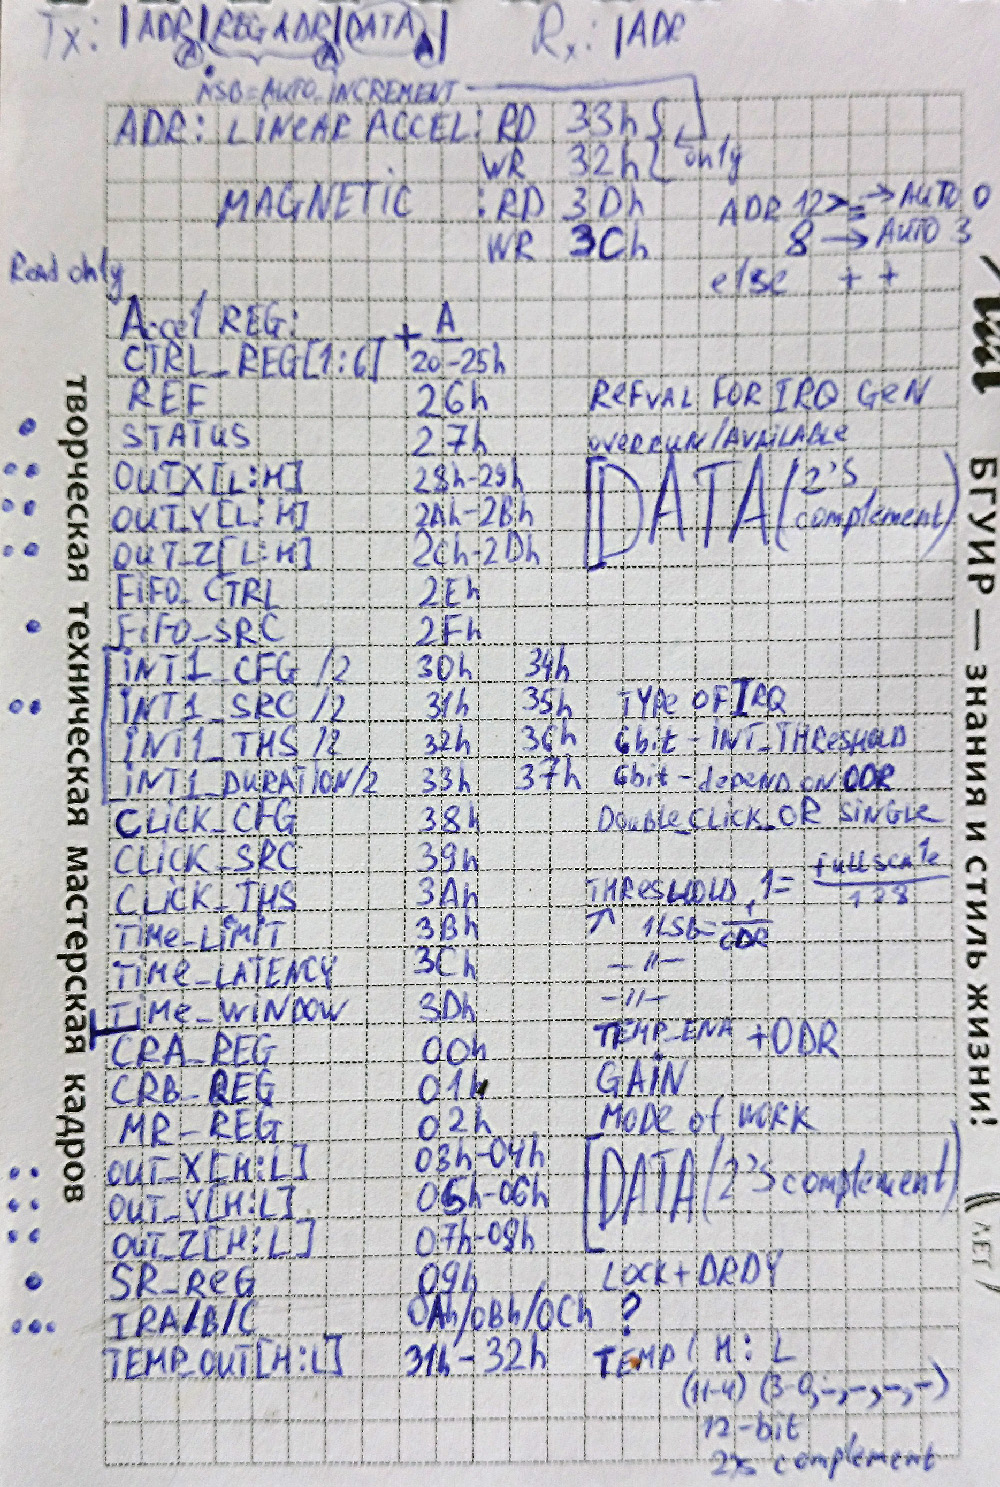 Tx: |ADR|REG ADR|DATA| Rx: |ADR
A A A
MSB=AUTO_INCREMENT
ADR: LiNEAR ACCEL: RD 33h
WR 32h only
MAGNETIC :RD 3Dh
WR 3Ch
ADR 12>= → AUTO 0
8 → AUTO 3
else + +
Read only
Accel REG: + A
CTRL_REG[1:6] 20-25h
REF 26h REFVAL FOR IRQ GEN
STATUS 27h overrun/AVAILABLE
OUTX[L:H] 28h-29h DATA (2'S complement)
OUT_Y[L:H] 2Ah-2Bh
OUT_Z[L:H] 2Ch-2Dh
FIFO_CTRL 2Eh
FIFO_SRC 2Fh
INT1_CFG /2 30h 34h
INT1_SRC /2 31h 35h TYPE OF IRQ
INT1_THS /2 32h 36h 6bit - INT_THRESHOLD
INT1_DURATION/2 33h 37h 6bit - depend on ODR
CLICK_CFG 38h Double_CLICK_OR SINGLE
CLICK_SRC 39h
CLICK_THS 3Ah THRESHOLD 1= full scale/128
TIME_LIMIT 3Bh 1LSB=1/ODR
TIME_LATENCY 3Ch —"—
TIME_WINDOW 3Dh —"—
CRA_REG 00h TEMP_ENA +ODR
CRB_REG 01h GAIN
MR_REG 02h MODE of WORK
OUT_X[H:L] 03h-04h DATA (2'S complement)
OUT_Y[H:L] 05h-06h
OUT_Z[H:L] 07h-08h
SR_REG 09h LOCK+DRDY
IRA/B/C 0Ah/0Bh/0Ch ?
TEMP_OUT[H:L] 31h-32h TEMP( H: L
(11-4) (3-0,-,-,-,-)
12-bit
2's complement
творческая техническая мастерская кадров
БГУИР — знания и стиль жизни!
ЛЕТ